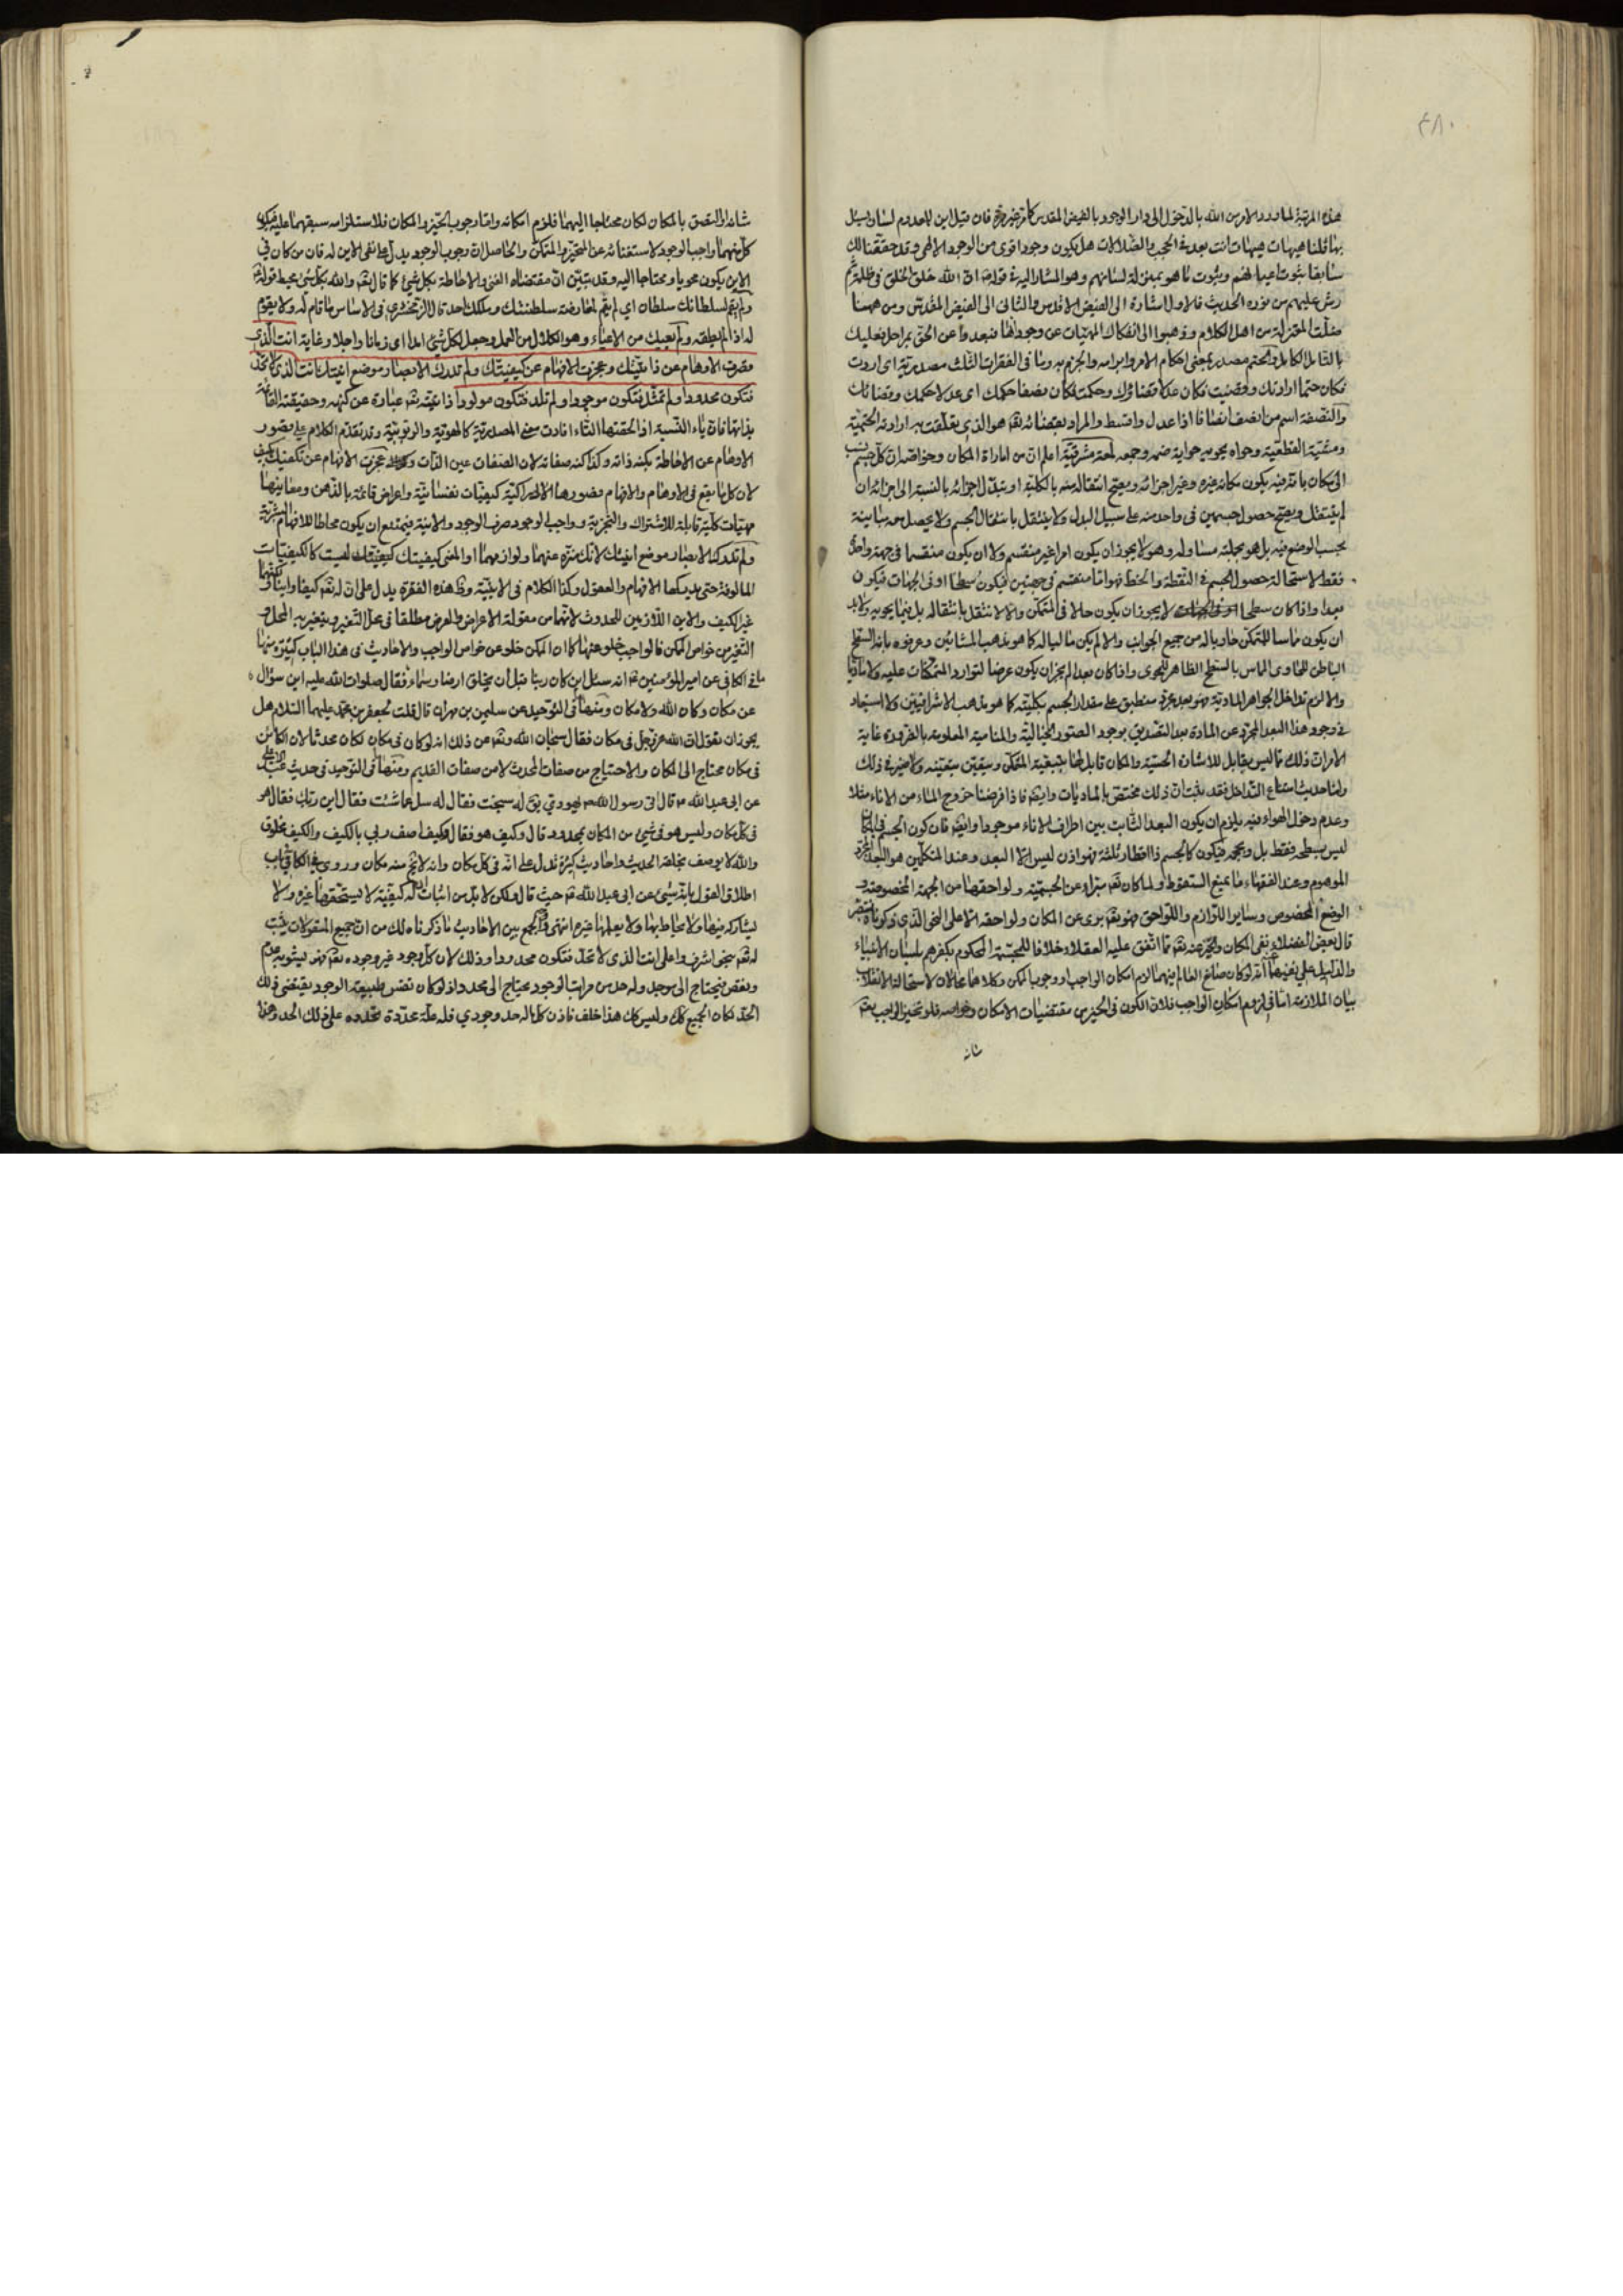 ٤٨٠
هذه المرتبة لما ورد الامر من الله بالدخول الى دار الوجود بالفيض المقدس كما مر غير مرة فان قيل اين للمعدوم لسان يسئل
بها قلنا هيهات هيهات انت بعد في الحجب والضلالات هل يكون وجود اقوى من الوجود الالهي وقد حققنا لك
سابقا ثبوت اعيانهم وثبوت ما هو بمنزلة لسانهم وهو المشار اليه في قوله ان الله خلق الخلق في ظلمة ثم
رش عليهم من نوره الحديث فالاول اشارة الى الفيض الاقدس والثاني الى الفيض المقدس ومن ههنا
ضلت المعتزلة من اهل الكلام وذهبوا الى انفكاك المهيات عن وجوداتها فبعدوا عن الحق بمراحل فعليك
بالتامل الكامل والحتم مصدر بمعنى احكام الامر وابرامه والجزم به وما في الفقرات الثلث مصدرية اى اردت
فكان حتما ارادتك وقضيت فكان عدلا قضاؤك وحكمت فكان نصفا حكمك اى عدلا حكمك وقضائك
والنصفة اسم من انصف انصافا اذا عدل واقسط والمراد بقضائه تع هو الذى تعلقت به ارادته الحتمية
ومشيته القطعية وحواه يحويه حواية ضمه وجمعه لمعة مشرقية اعلم ان من امارات المكان وخواصه ان كل جسم ينسب
الى مكان ما ترفيه يكون مكانه غيره وغير اجزائه ويصح انتقاله منه بالكلية او بتبدل اجزائه بالنسبة الى اجزائه ان
لم ينتقل ويصح حصول جسمين فى واحد منه على سبيل البدل ولا ينتقل بانتقال الجسم ولا يحصل معه مباينة
بحسب الوضع فيه بل هو بجملته مساو له وهو لا يجوز ان يكون امرا غير منقسم ولا ان يكون منقسما فى جهة واحدة
فقط لاستحالة حصول الجسم فى النقطة والخط فهو اما منقسم فى جهتين فيكون سطحا او فى الجهات فيكون
بعدا واذا كان سطحا لا يجوز ان يكون حالا فى المتمكن والا لانتقل بانتقاله بل فيما يحويه ولابد
ان يكون مماسا للمتمكن حاويا له من جميع الجوانب والا لم يكن ماليا له كما هو مذهب المشائين وعرفوه بانه السطح
الباطن للحاوى المماس بالسطح الظاهر للمحوى واذا كان بعدا لم يجز ان يكون عرضا لتوارد المتمكنات عليه ولا ماديا
والا لزم تداخل الجواهر المادية فهو بعد مجرد منطبق على مقدار الجسم بكليته كما هو مذهب الاشراقيين ولا استبعاد
فى وجود هذا البعد المجرد عن المادة بعد التصديق بوجود الصور الخيالية والمنامية المعلومة بالضرورة غاية
الامر ان ذلك مما ليس بقابل للاشارة الحسية والمكان قابل لها بتبعية المتمكن ويتعين بتعينه ولا ضير فى ذلك
واما حديث امتناع التداخل فقد يثبت ان ذلك مختص بالماديات وايضا فاذا فرضنا خروج الماء من الاناء مثلا
وعدم دخول الهواء فيه يلزم ان يكون البعد الثابت بين اطراف الاناء موجودا وايضا فان كون الجسم فى المكان
ليس بسطحه فقط بل وبحجمه فيكون كالجسم ذا اقطار ثلثة فهو اذن ليس الا البعد وعند المتكلمين هو البعد المجرد
الموهوم وعند الفقهاء ما يمنع السقوط ولما كان تع مبرا عن الجسمية ولواحقها من الجهة المخصوصة و
الوضع المخصوص وساير اللوازم واللواحق فهو تع برى عن المكان ولواحقه الا على النحو الذى ذكرناه فتبصر
قال بعض الفضلاء نفى المكان والحيز عنه تع مما اتفق عليه العقلاء خلافا للمجسمة المحكوم بكفرهم بلسان الانبياء
والدليل على نفيهما انه لو كان صانع العالم فيهما لزم امكان الواجب او وجوب الممكن وكلاهما محالان لاستحالة الانقلاب
بيان الملازمة اما فى لزوم امكان الواجب فلان الكون فى الحيز من مقتضيات الامكان وخواصه فلو تحيز الواجب تع
شانه
شانه او التصق بالمكان لكان محتاجا اليهما فلزم امكانه واما وجوب الحيز والمكان فلاستلزامه سبقهما عليه فيكون
كل منهما واجب الوجود لاستغنائه عن المتحيز والمتمكن والحاصل ان وجوب الوجود يدل على نفى الاين له فان من كان فى
الاين يكون محويا ومحتاجا اليه وقد تبين ان مقتضاه الغنى والاحاطة بكل شئ كما قال تع والله بكل شئ محيط قوله
ولم يقم لسلطانك سلطان اى لم يقم لمعارضة سلطنتك وملكك احد قال الزمخشرى فى الاساس ما قام له ولا يقوم
له اذا لم يطقه ولم يعيك من الاعياء وهو الكلال من العمل وجعل لكل شئ امدا اى زمانا واجلا وغاية انت الذى
قصرت الاوهام عن ذاتيتك وعجزت الافهام عن كيفيتك ولم تدرك الابصار موضع اينيتك انت الذى لا تحد
فتكون محدودا ولم تمثل فتكون موجودا ولم تلد فتكون مولودا ذاتيته تع عبارة عن كنهه وحقيقته القائمة
بذاتها فان ياء النسبة اذا لحقتها التاء افادت معنى المصدرية كالهوية والربوبية وقد تقدم الكلام على قصور
الاوهام عن الاحاطة بكنه ذاته وكذا كنه صفاته لان الصفات عين الذات وكذا عجزت الافهام عن تكييفك بكيف
لان كل ما يقع فى الاوهام والافهام فصورها الادراكية كيفيات نفسانية واعراض قائمة بالذهن ومعانيها
مهيات كلية قابلة للاشتراك والتجزية وواجب الوجود صرف الوجود والانية فيمتنع ان يكون محاطا للافهام البشرية
ولم تدرك الابصار موضع اينيتك لانك منزه عنهما ولوازمهما او المعنى كيفيتك كيفيتك ليست كالكيفيات
المالوفة حتى يدركها الافهام والعقول وكذا الكلام فى الاينية وظ هذه الفقرة يدل على ان له تع كيفا واينا لكنهما
غير الكيف والاين اللازمين للحدوث لانهما من مقولة الاعراض والعرض مطلقا فى محل التغير ويتغير به المحل و
التغير من خواص الممكن فالواجب خلو عنها كما ان الممكن خلو عن خواص الواجب والاحاديث فى هذا الباب كثيرة منها
ما فى الكافى عن امير المؤمنين ع انه سئل اين كان ربنا قبل ان يخلق ارضا وسماء فقال صلوات الله عليه اين سؤال
عن مكان وكان الله ولا مكان ومنها فى التوحيد عن سليمن بن مهران قال قلت لجعفر بن محمد عليهما السلام هل
يجوز ان نقول ان الله عز وجل فى مكان فقال سبحان الله وتع عن ذلك انه لو كان فى مكان لكان محدثا لان الكائن
فى مكان محتاج الى المكان والاحتياج من صفات المحدث لا من صفات القديم ومنها فى التوحيد فى حديث عبد الاعلى
عن ابى عبد الله ع قال اتى رسول الله ص يهودي يق له سبحت فقال له سل عما شئت فقال اين ربك فقال هو
فى كل مكان وليس هو فى شئ من المكان بمحدود قال وكيف هو فقال وكيف اصف ربى بالكيف والكيف مخلوق
والله لا يوصف بخلقه الحديث واحاديث كثيرة تدل على انه فى كل مكان وانه لا يخ منه مكان وروى فى الكافى فى باب
اطلاق القول بانه شئ عن ابى عبد الله ع حيث قال ولكن لا بد من اثبات ان له كيفية لا يستحقها غيره ولا
يشاركه فيها ولا يحاط بها ولا يعلمها غيره انتهى والجمع بين الاحاديث ما ذكرناه لك من ان جميع المقولات يثبت
له تع بنحو اشرف واعلى انت الذى لا تحد فتكون محدودا وذلك لان كل وجود غير وجوده تع فهو ليشوبه عدم
ونقص فيحتاج الى موجد وله حد من مراتب الوجود يحتاج الى محدد اذ لو كان نفس طبيعة الوجود يقتضى ذلك
الحد لكان الجميع كك وليس كك هذا خلف فاذن كل ما له حد وجودي فله علة محددة تحدده على ذلك الحد وهذا